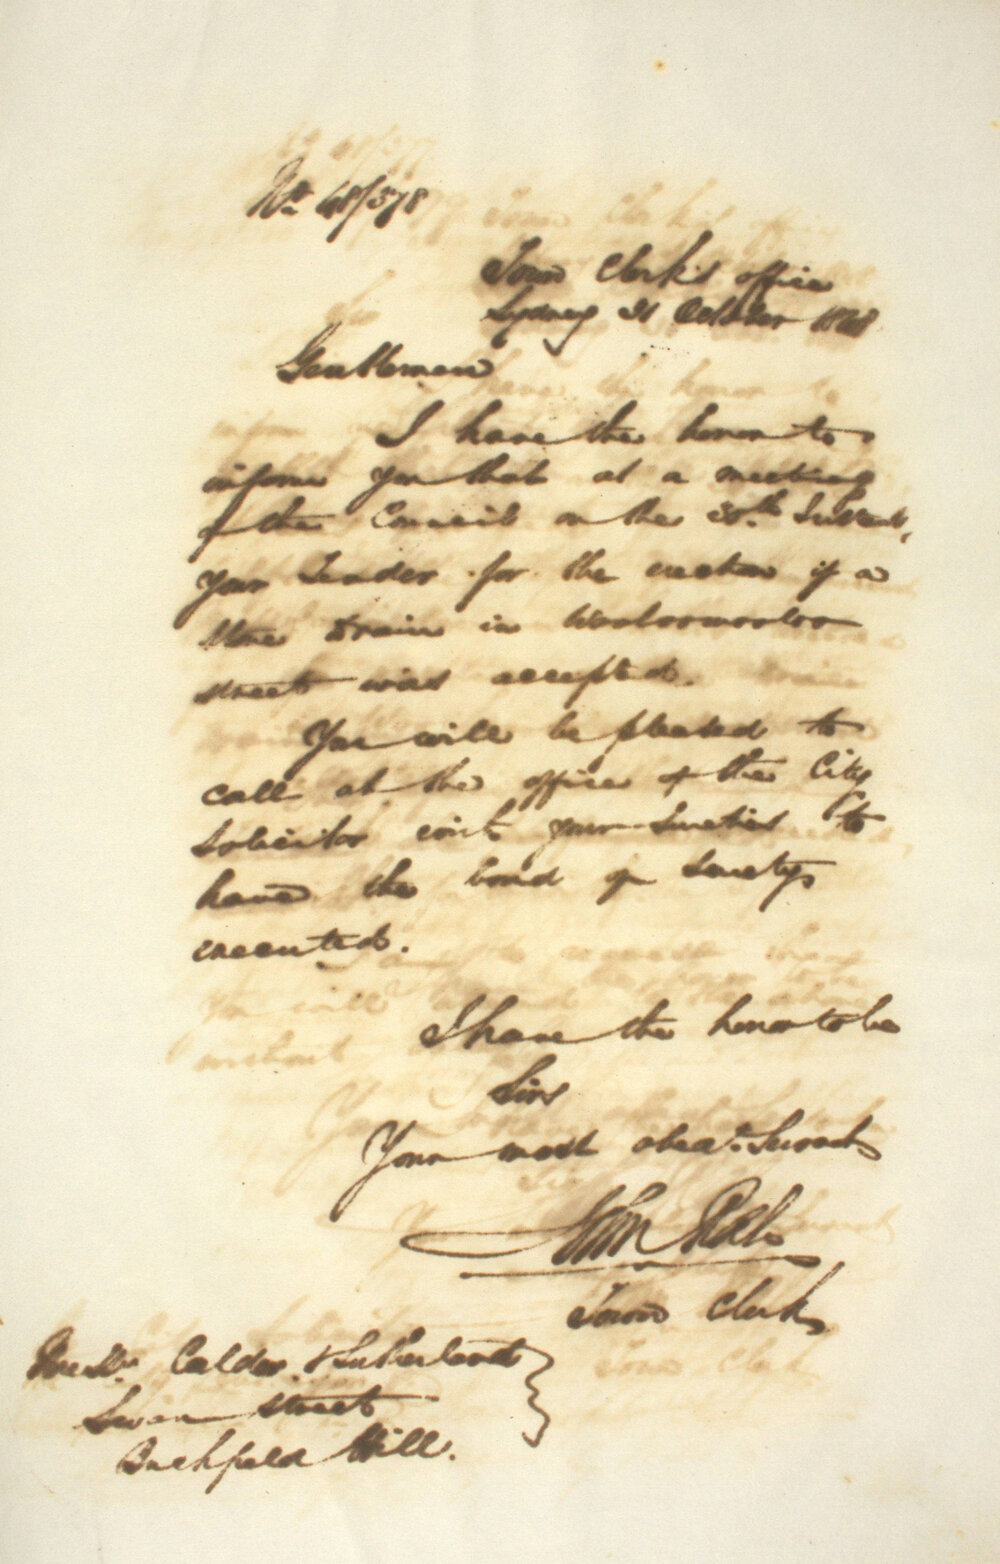 No. 48/578
Town Clerk's office
Sydney 31 October 1848
Gentlemen
I have the honor to
inform you that at a meeting
of the Council on the 30th Instant,
your Tender for the erection of a
Stone Drain in Wooloomooloo
street was accepted.
You will be pleased to
call at the office of the City
Solicitor with your Sureties to
have the bond of Surety
executed.
I have the honor to be
Sirs
Your most obedt. Servant
John
Town Clerk
Messrs. Calder & Sutherland
street
Hill.